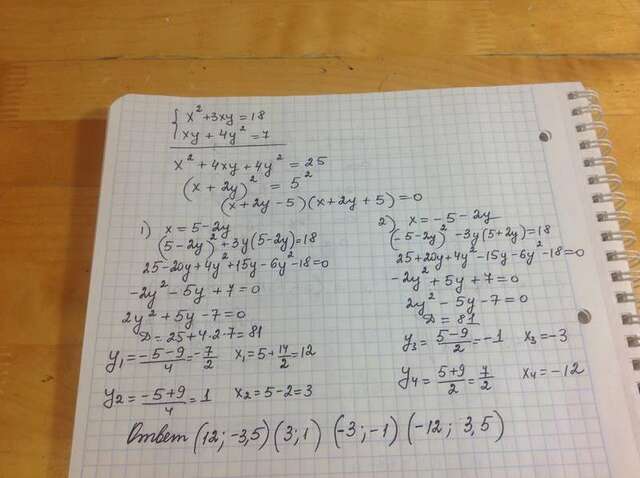 { x² + 3xy = 18
xy + 4y² = 7
x² + 4xy + 4y² = 25
(x + 2y)² = 5²
(x + 2y - 5)(x + 2y + 5) = 0
1) x = 5 - 2y
(5 - 2y)² + 3y(5 - 2y) = 18
25 - 20y + 4y² + 15y - 6y² - 18 = 0
-2y² - 5y + 7 = 0
2y² + 5y - 7 = 0
D = 25 + 4·2·7 = 81
y₁ = (-5-9)/4 = -7/2 x₁ = 5 + 14/2 = 12
y₂ = (-5+9)/4 = 1 x₂ = 5 - 2 = 3
2) x = -5 - 2y
(-5 - 2y)² - 3y(5 + 2y) = 18
25 + 20y + 4y² - 15y - 6y² - 18 = 0
-2y² + 5y + 7 = 0
2y² - 5y - 7 = 0
D = 81
y₃ = (5-9)/2 = -1 x₃ = -3
y₄ = (5+9)/2 = 7/2 x₄ = -12
Ответ (12; -3,5) (3; 1) (-3; -1) (-12; 3,5)